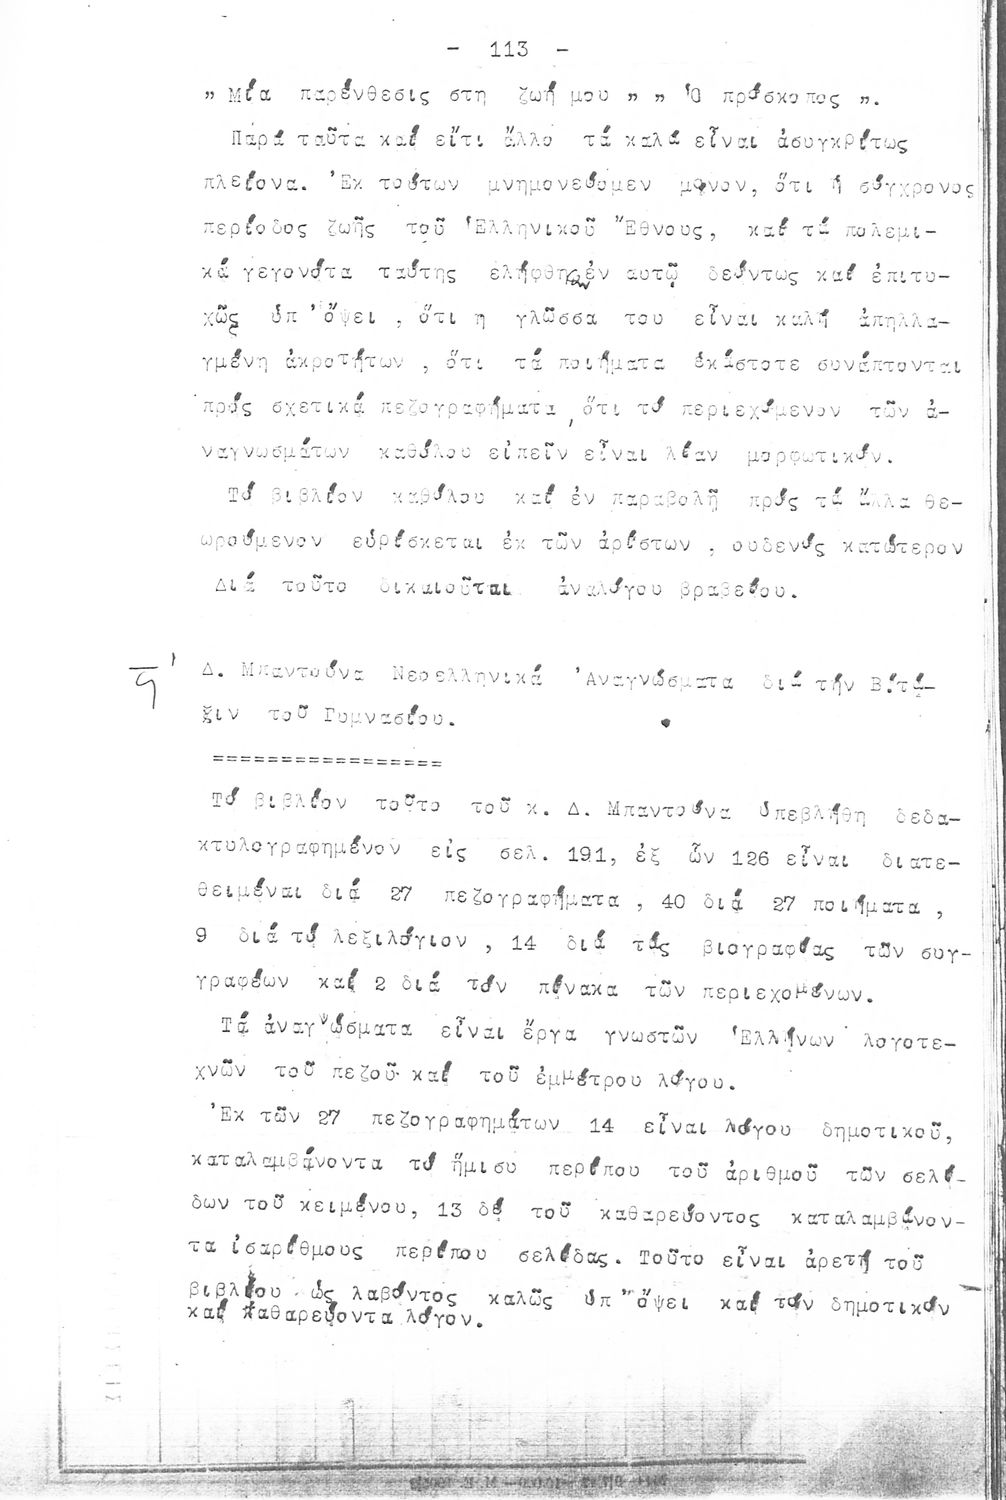 - 113 -
" Μία παρένθεσις στη ζωή μου " " Ὁ πρόσκοπος ".
Πάρά ταῦτα καί εἴτι ἄλλο τά καλά εἶναι ἀσυγκρίτως
πλείονα. Ἐκ τούτων μνημονεύομεν μόνον, ὅτι ἡ σύγχρονος
περίοδος ζωῆς τοῦ Ἑλληνικοῦ Ἔθνους, καί τά πολεμι-
κά γεγονότα ταύτης ελήφθησαν ἐν αυτῷ δεόντως καί ἐπιτυ-
χῶς ὑπ' ὄψει , ὅτι η γλῶσσα του εἶναι καλή ἀπηλλα-
γμένη ἀκροτήτων , ὅτι τά ποιήματα ἑκάστοτε συνάπτονται
πρός σχετικά πεζογραφήματα , ὅτι τό περιεχόμενον τῶν ἀ-
ναγνωσμάτων καθόλου εἰπεῖν εἶναι λίαν μορφωτικόν.
Τό βιβλίον καθόλου καί ἐν παραβολῇ πρός τά ἄλλα θε-
ωρούμενον εὑρίσκεται ἐκ τῶν ἀρίστων , ουδενός κατώτερον
Διά τοῦτο δικαιοῦται ἀναλόγου βραβείου.
Δ. Μπαντούνα Νεοελληνικά Ἀναγνώσματα διά τήν Β.τά-
ξιν τοῦ Γυμνασίου.
=================
Τό βιβλίον τοῦτο τοῦ κ. Δ. Μπαντούνα ὑπεβλήθη δεδα-
κτυλογραφημένον εἰς σελ. 191, ἐξ ὧν 126 εἶναι διατε-
θειμέναι διά 27 πεζογραφήματα , 40 διά 27 ποιήματα ,
9 διά τό λεξιλόγιον , 14 διά τάς βιογραφίας τῶν συγ-
γραφέων καί 2 διά τόν πίνακα τῶν περιεχομένων.
Τά ἀναγνώσματα εἶναι ἔργα γνωστῶν Ἑλλήνων λογοτε-
χνῶν τοῦ πεζοῦ καί τοῦ ἐμμέτρου λόγου.
Ἐκ τῶν 27 πεζογραφημάτων 14 εἶναι λόγου δημοτικοῦ,
καταλαμβάνοντα τό ἥμισυ περίπου τοῦ ἀριθμοῦ τῶν σελί-
δων τοῦ κειμένου, 13 δέ τοῦ καθαρεύοντος καταλαμβάνον-
τα ἰσαρίθμους περίπου σελίδας. Τοῦτο εἶναι ἀρετή τοῦ
βιβλίου ὡς λαβόντος καλῶς ὑπ' ὄψει καί τόν δημοτικόν
καί καθαρεύοντα λόγον.